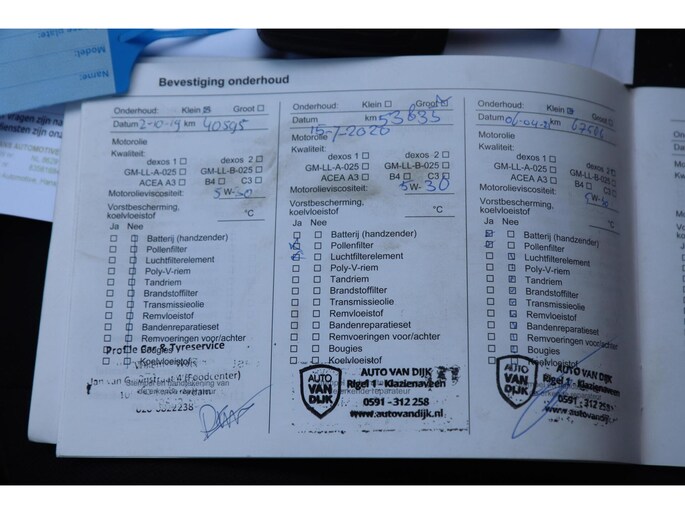 Name:
Model:
Bevestiging onderhoud
Onderhoud: Klein Groot
Datum 2-10-19 km 40895
Motorolie
Kwaliteit:
dexos 1 dexos 2
GM-LL-A-025 GM-LL-B-025
ACEA A3 B4 C3
Motorolieviscositeit: 5W-30
Vorstbescherming,
koelvloeistof °C
Ja Nee
Batterij (handzender)
Pollenfilter
Luchtfilterelement
Poly-V-riem
Tandriem
Brandstoffilter
Transmissieolie
Remvloeistof
Bandenreparatieset
Remvoeringen voor/achter
Bougies
Koelvloeistof
Profile Car & Tyreservice
(Foodcenter)
020 6822238
Onderhoud: Klein Groot
Datum 15-7-2020 km 53835
Motorolie
Kwaliteit:
dexos 1 dexos 2
GM-LL-A-025 GM-LL-B-025
ACEA A3 B4 C3
Motorolieviscositeit: 5W-30
Vorstbescherming,
koelvloeistof °C
Ja Nee
Batterij (handzender)
Pollenfilter
Luchtfilterelement
Poly-V-riem
Tandriem
Brandstoffilter
Transmissieolie
Remvloeistof
Bandenreparatieset
Remvoeringen voor/achter
Bougies
Koelvloeistof
AUTO VAN DIJK
AUTO VAN DIJK
Rigel 1 - Klazienaveen
0591 - 312 258
www.autovandijk.nl
Onderhoud: Klein Groot
Datum km
Motorolie
Kwaliteit:
dexos 1 dexos 2
GM-LL-A-025 GM-LL-B-025
ACEA A3 B4 C3
Motorolieviscositeit: 5W-30
Vorstbescherming,
koelvloeistof °C
Ja Nee
Batterij (handzender)
Pollenfilter
Luchtfilterelement
Poly-V-riem
Tandriem
Brandstoffilter
Transmissieolie
Remvloeistof
Bandenreparatieset
Remvoeringen voor/achter
Bougies
Koelvloeistof
AUTO VAN DIJK
AUTO VAN DIJK
Rigel 1 - Klazienaveen
0591 - 312 258
www.autovandijk.nl